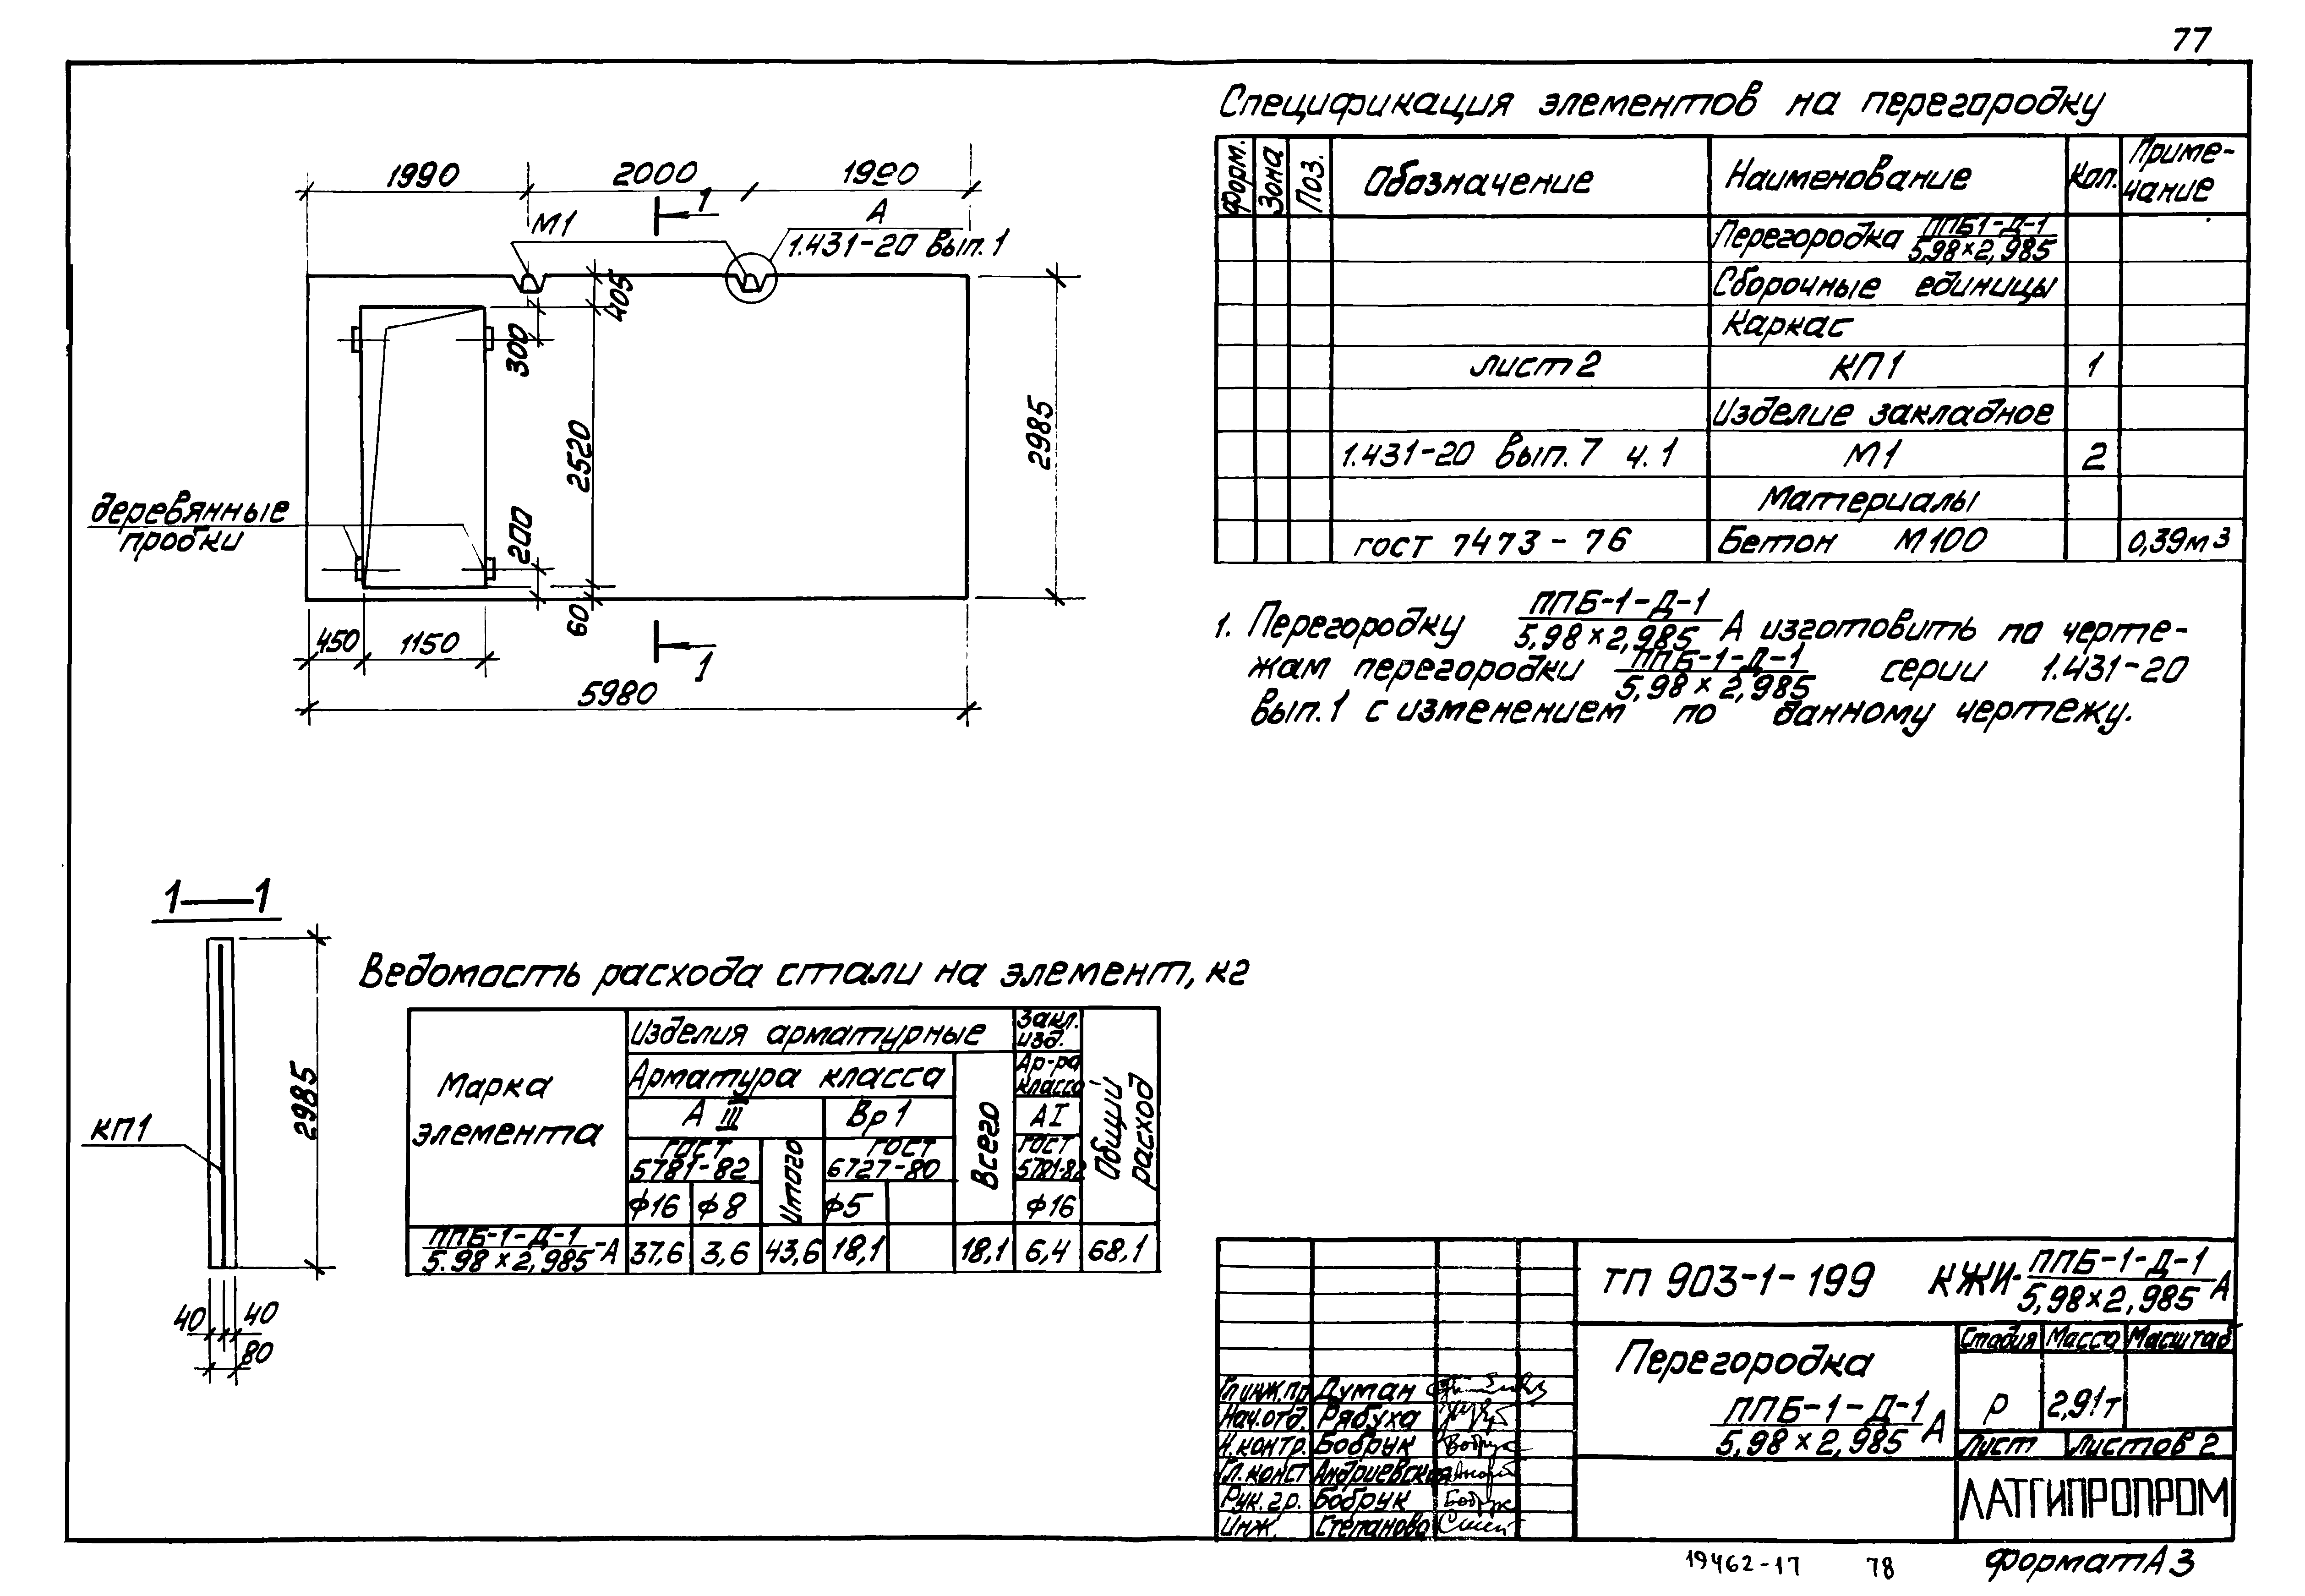 77
1990
2000
1990
1
А
М1
1.431-20 вып.1
405
300
2520
2985
200
деревянные
пробки
60
450
1150
1
5980
Спецификация элементов на перегородку
Форм.
Зона
Поз.
Обозначение
Наименование
Кол.
Приме-
чание
Перегородка ППБ1-Д-1
5,98×2,985
Сборочные единицы
Каркас
лист 2 КП1 1
Изделие закладное
1.431-20 вып. 7 ч. 1 М1 2
Материалы
гост 7473-76 Бетон М100 0,39м3
1. Перегородку ППБ-1-Д-1
5,98×2,985 А изготовить по черте-
жам перегородки ППБ-1-Д-1
5,98×2,985 серии 1.431-20
вып.1 с изменением по данному чертежу.
1—1
2985
КП1
40
40
80
Ведомость расхода стали на элемент, кг
Марка
элемента
Изделия арматурные
Закл.
изд.
Арматура класса
Ар-ра
класса
А III
Вр 1
Всего
А I
Общий
расход
ГОСТ
5781-82
Итого
ГОСТ
6727-80
ГОСТ
5781-82
ф16
ф8
ф5
ф16
ППБ-1-Д-1
5.98×2,985 -А 37,6 3,6 43,6 18,1 18,1 6,4 68,1
ТП 903-1-199 КЖИ- ППБ-1-Д-1
5,98×2,985 А
Перегородка
ППБ-1-Д-1
5,98×2,985 А
Стадия Масса Масштаб
Р 2,91т
Лист Листов 2
ЛАТГИПРОПРОМ
Гл.инж.пр Думан
Нач.отд. Рябуха
Н.контр. Бобрук
Гл.конст Андриевская
Рук.гр. Бобрук
Инж. Степанова
19462-17 78
Формат А3